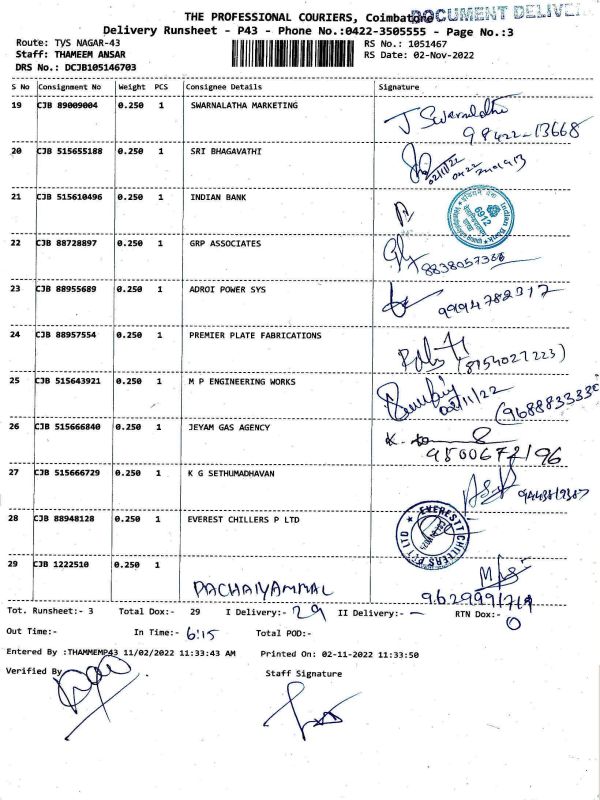 THE PROFESSIONAL COURIERS, Coimbatore
DOCUMENT DELIVE
Delivery Runsheet - P43 - Phone No.:0422-3505555 - Page No.:3
Route: TVS NAGAR-43 RS No.: 1051467
Staff: THAMEEM ANSAR RS Date: 02-Nov-2022
DRS No.: DCJB105146703
S No Consignment No Weight PCS Consignee Details Signature
19 CJB 89009004 0.250 1 SWARNALATHA MARKETING J Swarnalatha
98422-13668
20 CJB 515655188 0.250 1 SRI BHAGAVATHI
02/11/22 0422
21 CJB 515610496 0.250 1 INDIAN BANK
Indian Bank 6912
22 CJB 88728897 0.250 1 GRP ASSOCIATES
8838057388
23 CJB 88955689 0.250 1 ADROI POWER SYS 9994782317
24 CJB 88957554 0.250 1 PREMIER PLATE FABRICATIONS
(8754027223)
25 CJB 515643921 0.250 1 M P ENGINEERING WORKS
02/11/22 (9688833330
26 CJB 515666840 0.250 1 JEYAM GAS AGENCY K.
9500672196
27 CJB 515666729 0.250 1 K G SETHUMADHAVAN
28 CJB 88948128 0.250 1 EVEREST CHILLERS P LTD
EVERESTT CHILLERS PVT LTD
29 CJB 1222510 0.250 1
PACHAIYAMMAL 9629991719
Tot. Runsheet:- 3 Total Dox:- 29 I Delivery:- 29 II Delivery:- - RTN Dox:- 0
Out Time:- In Time:- 6:15 Total POD:-
Entered By :THAMMEMP43 11/02/2022 11:33:43 AM Printed On: 02-11-2022 11:33:50
Verified By Staff Signature